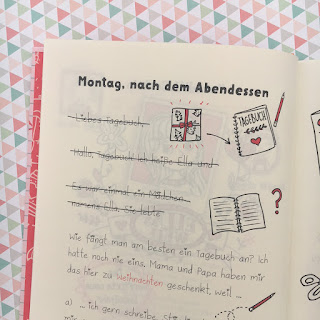 Montag, nach dem Abendessen
Liebes Tagebuch
TAGEBUCH
Hallo, Tagebuch ich heiße Elly und
Es war einmal ein Mädchen
namens Elly. Sie lebte
?
Wie fängt man am besten ein Tagebuch an? Ich
hatte noch nie eins. Mama und Papa haben mir
das hier zu Weihnachten geschenkt, weil ...
a) ... ich gern schreibe,